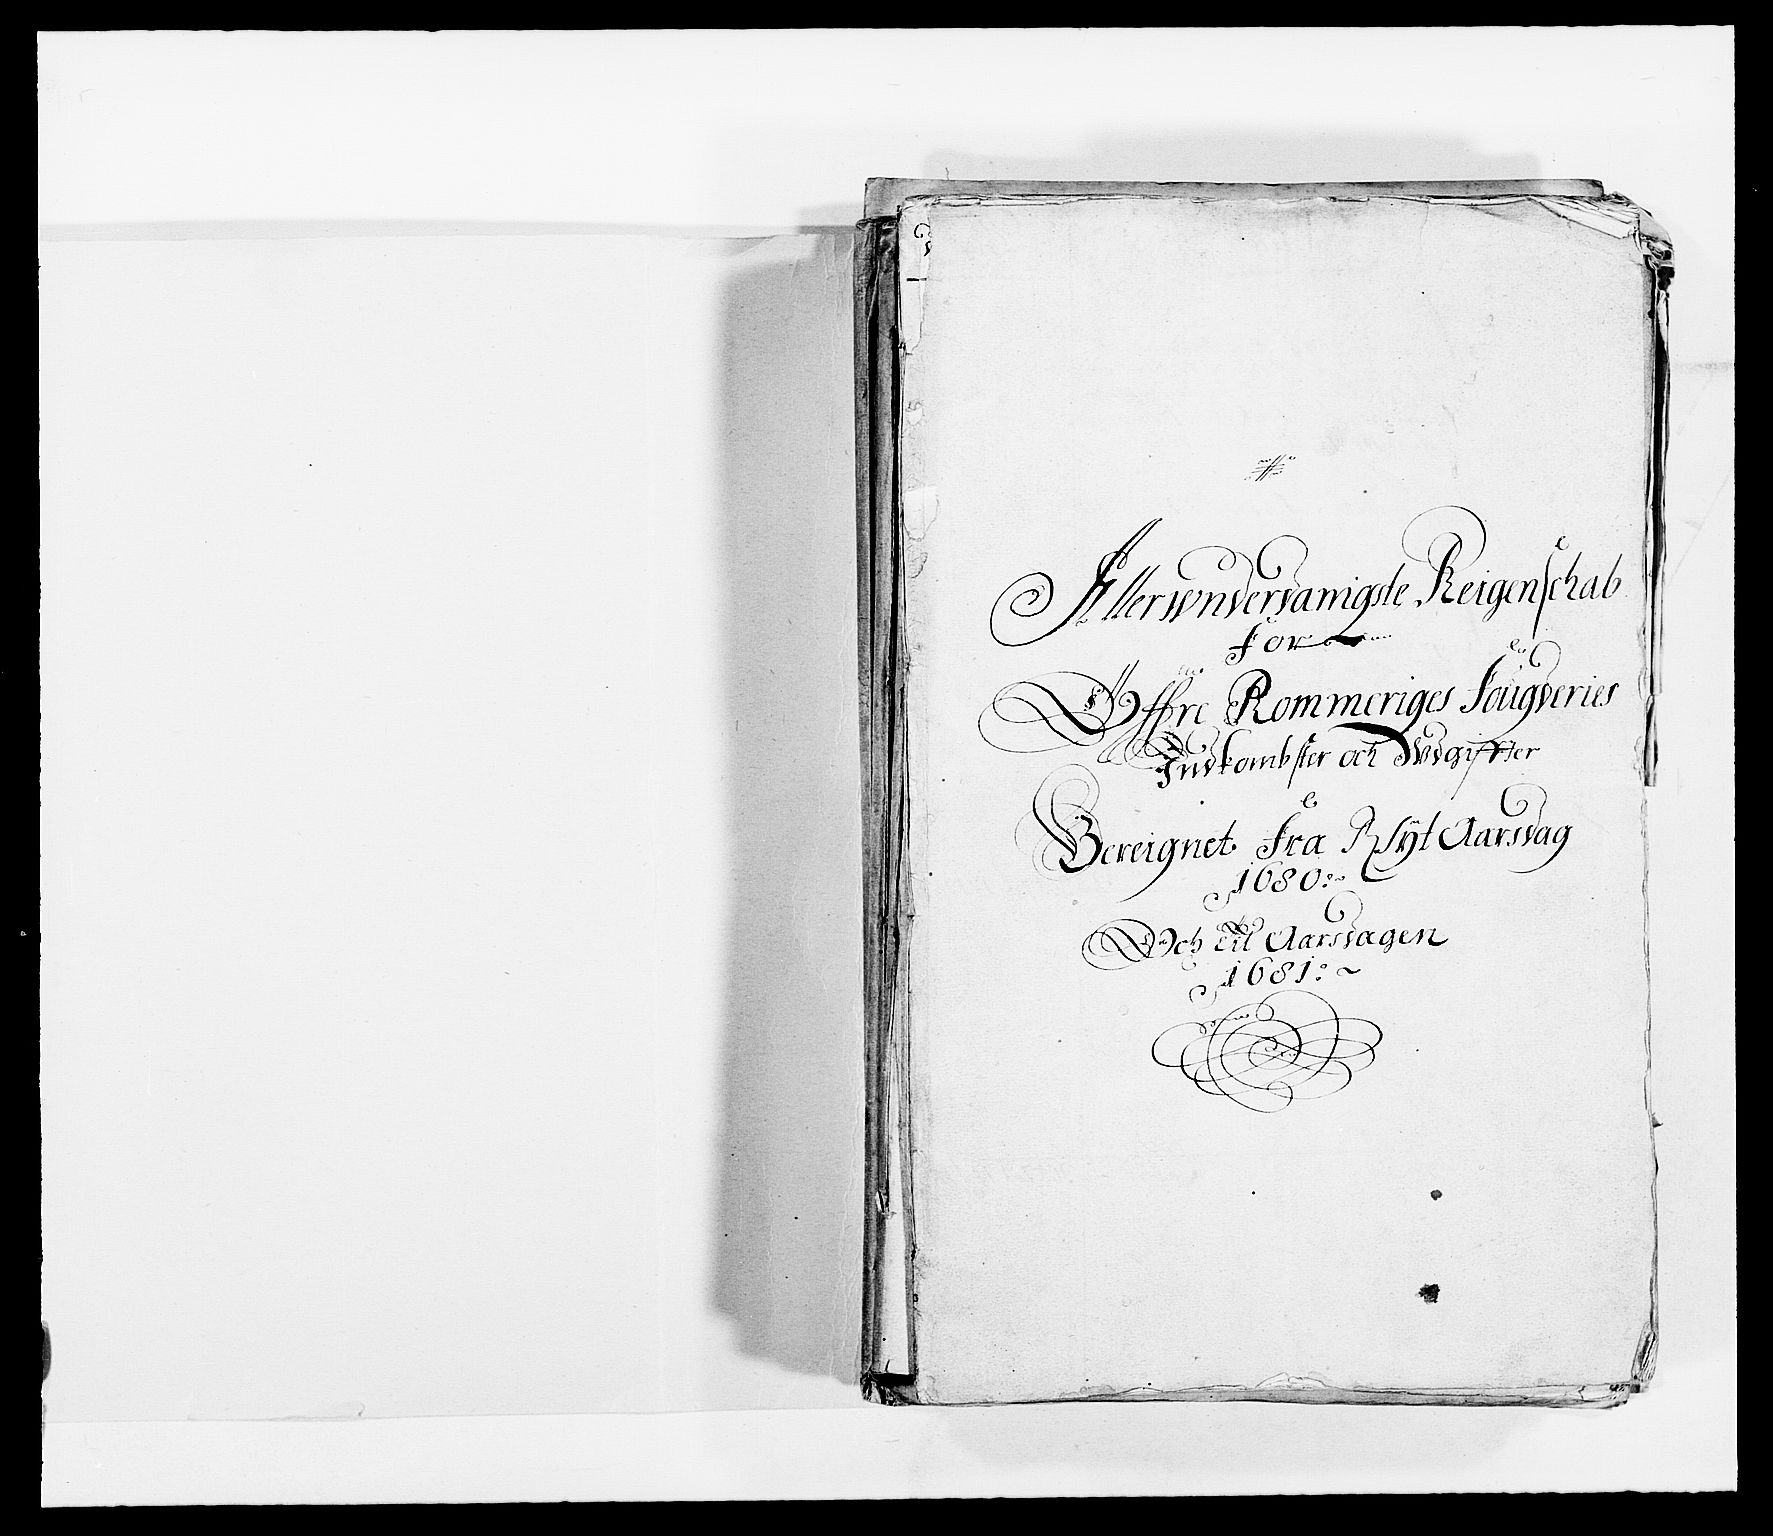 Allerunderdanigste Reigenschab
For
Øffre Rommeriges Fougderies
Indkombster och Udgiffter
Bereignet fra Nyt Aarsdag
1680:
Och til Aarsdagen
1681: